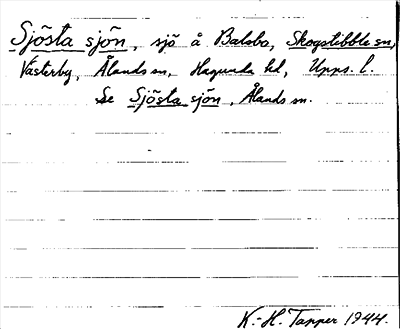 Sjösta sjön, sjö å Balsbo, Skogstibble sn,
Västerby, Ålands sn, Hagunda hd, Upps. l.
Se Sjösta sjön, Ålands sn.
K.-H. Tapper 1944.